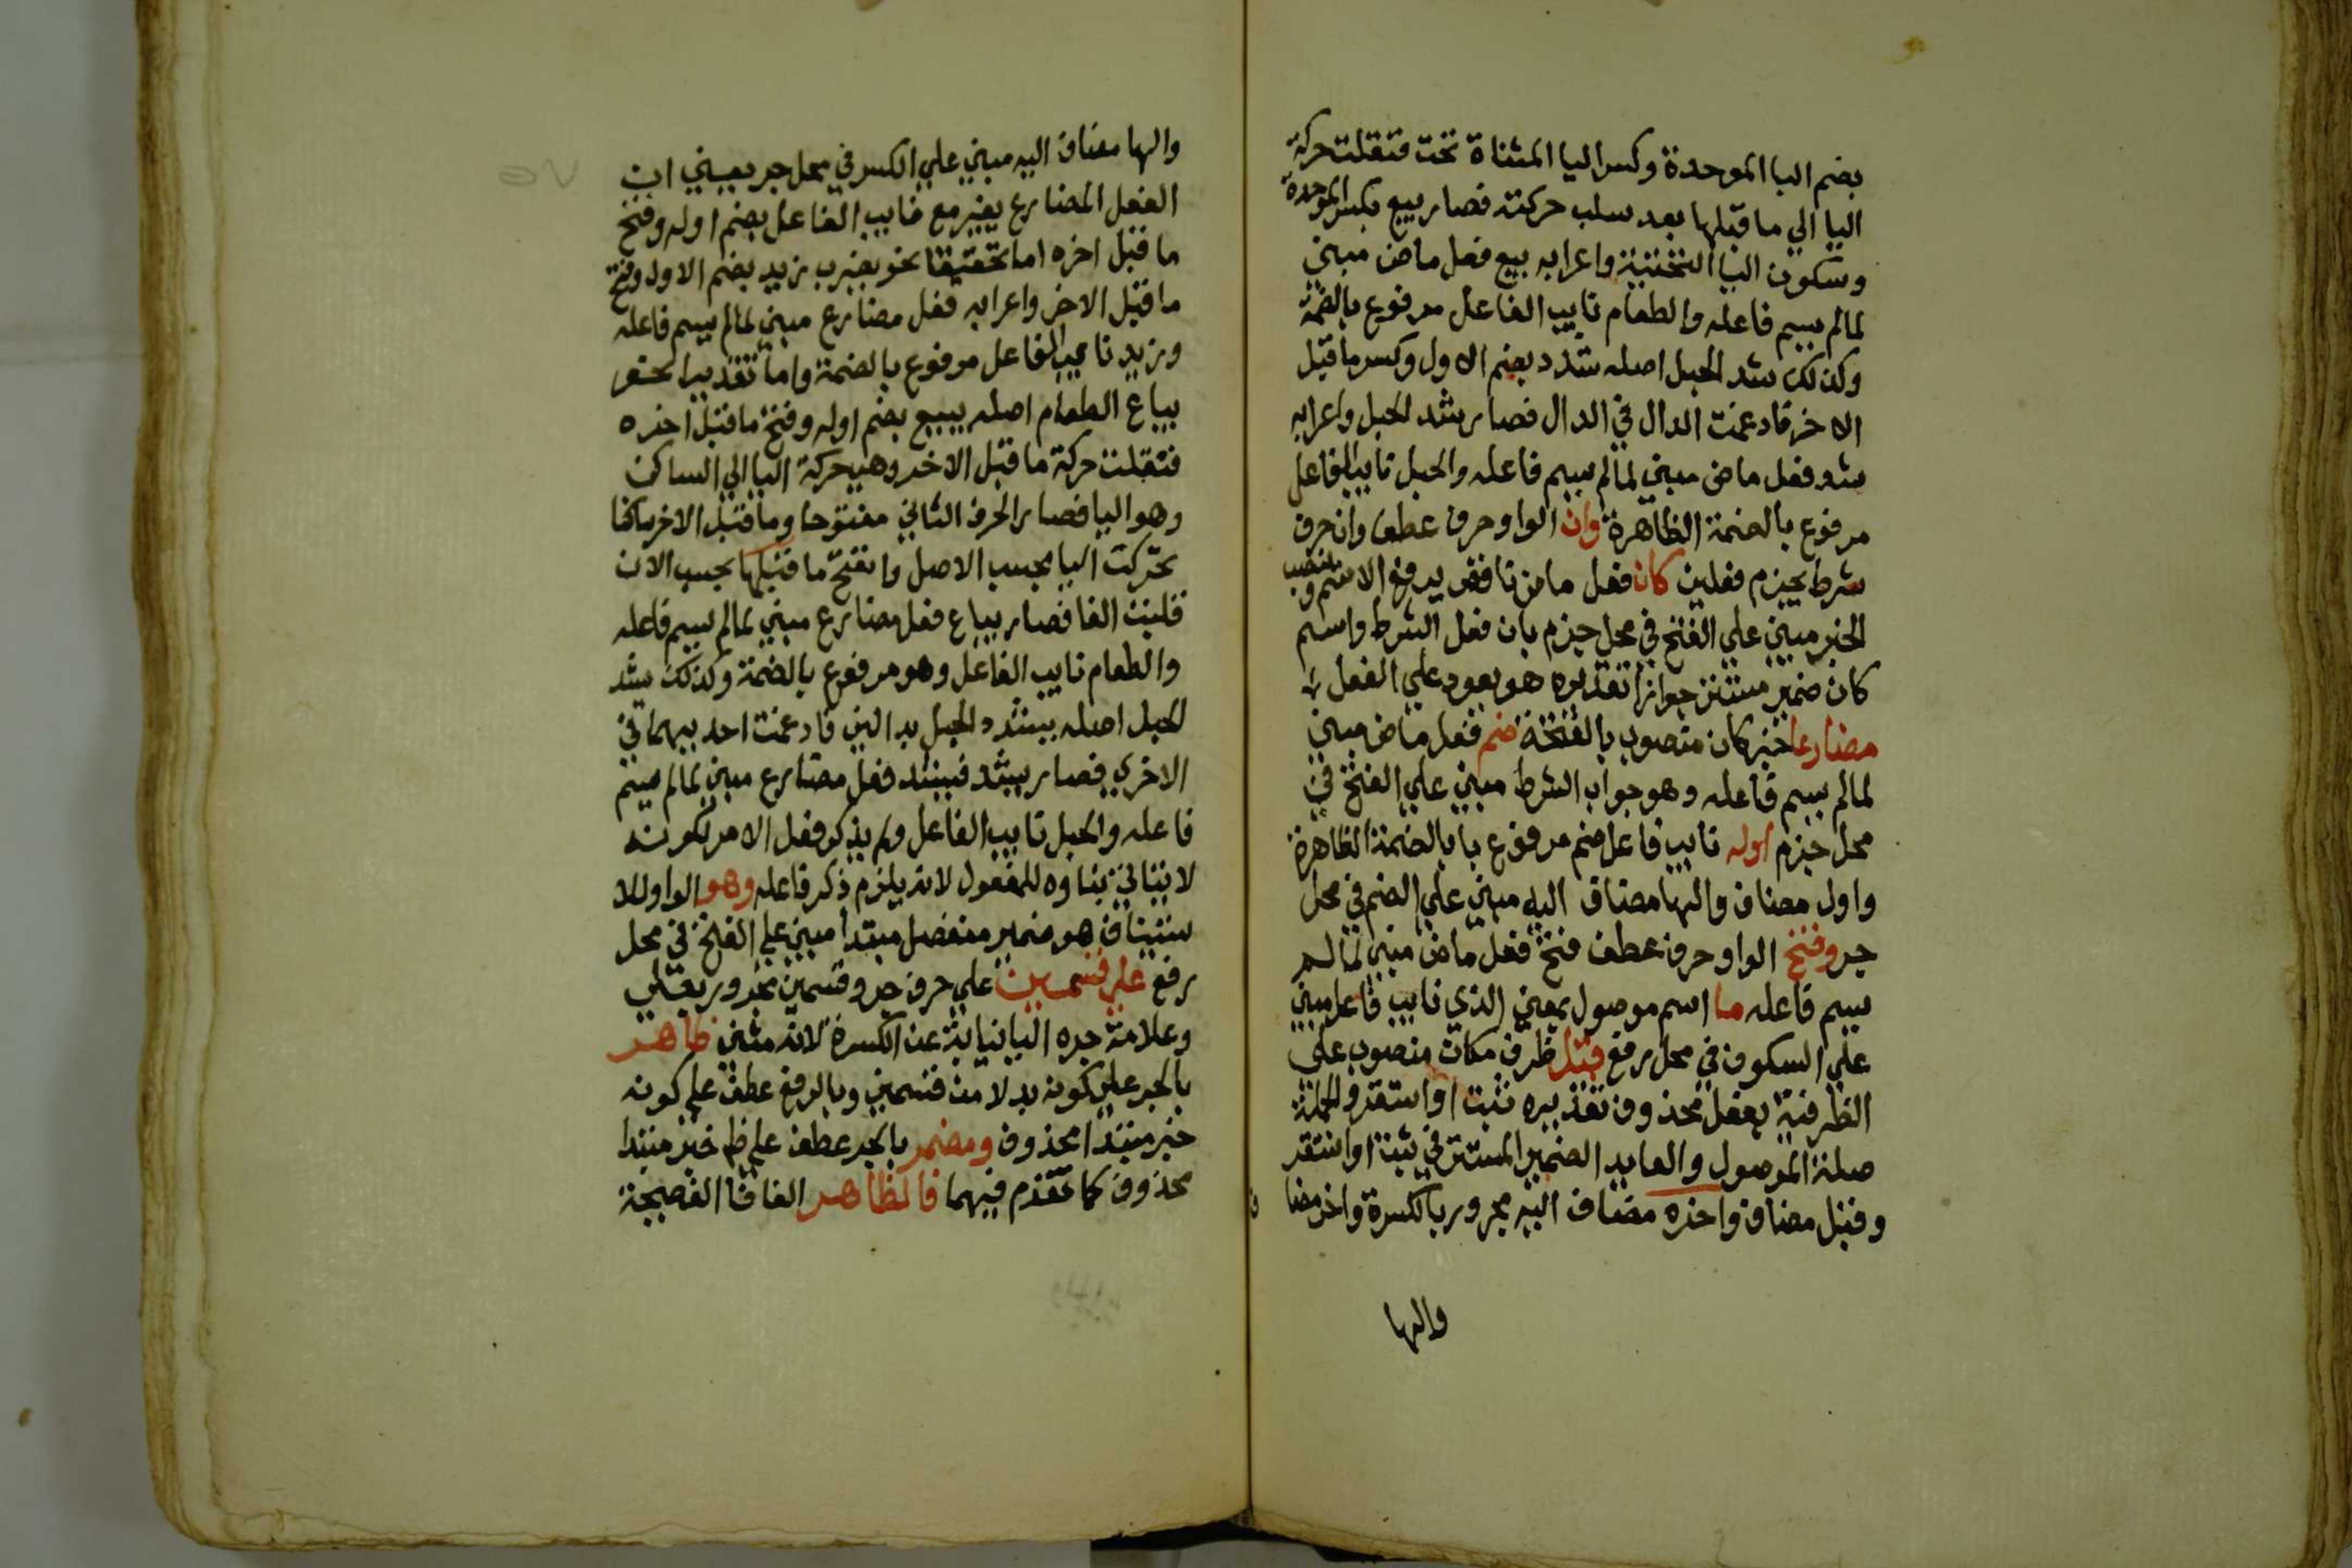 بضم البا الموحدة وكسر اليا المثناة تحت فنقلت حركة
اليا الي ما قبلها بعد سلب حركته فصار بيع بكسر الموحدة
وسكون اليا التحتية واعرابه بيع فعل ماض مبني
لمالم يسم فاعله والطعام نايب الفاعل مرفوع بالضمة
وكذلك شد الحبل اصله شدد بضم الاول وكسر ما قبل
الاخر فادغمت الدال في الدال فصار شد الحبل واعرابه
شد فعل ماض مبني لمالم يسم فاعله والحبل نايب الفاعل
مرفوع بالضمة الظاهرة وان الواو حرف عطف وان حرف
شرط يجزم فعلين كان فعل ماض ناقص يرفع الاسم وينصب
الخبر مبني علي الفتح في محل جزم بان فعل الشرط واسم
كان ضمير مستتر جوازا تقديره هو يعود علي الفعل
مضارعا خبر كان منصوب بالفتحة ضم فعل ماض مبني
لمالم يسم فاعله وهو جواب الشرط مبني علي الفتح في
محل جزم اوله نايب فاعل ضم مرفوع با بالضمة الظاهرة
واول مضاف والها مضاف اليه مبني علي الضم في محل
جر وفتح الواو حرف عطف فتح فعل ماض مبني لمالم
يسم فاعله ما اسم موصول بمعني الذي نايب فاعل مبني
علي السكون في محل رفع قبل ظرف مكان منصوب علي
الظرفية بفعل محذوف تقديره ثبت او استقر والجملة
صلة الموصول والعايد الضمير المستتر في ثبت او استقر
وقبل مضاف واخره مضاف اليه مجرور بالكسرة واخر مضا
والها
والها مضاف اليه مبني علي الكسر في محل جر يعني ان
الفعل المضارع يغير مع نايب الفاعل بضم اوله وفتح
ما قبل اخره اما تحقيقا نحو يضرب زيد بضم الاول وفتح
ما قبل الاخر واعرابه فعل مضارع مبني لمالم يسم فاعله
وزيد نايب الفاعل مرفوع بالضمة واما تقديرا نحو
يباع الطعام اصله يبيع بضم اوله وفتح ما قبل اخره
فنقلت حركة ما قبل الاخر وهي حركة اليا الي الساكن
وهو البا فصار الحرف الثاني مفتوحا وما قبل الاخر ساكنا
تحركت اليا بحسب الاصل وانفتح ما قبلها بحسب الان
قلبت الفا فصار يباع فعل مضارع مبني لمالم يسم فاعله
والطعام نايب الفاعل وهو مرفوع بالضمة وكذلك يشد
الحبل اصله يشدد الحبل بدالين فادغمت احديهما في
الاخري فصار يشد فيشد فعل مضارع مبني لمالم يسم
فاعله والحبل نايب الفاعل ولم يذكر فعل الامر لكونه
لا يتاتي بناوه للمفعول لانه يلزم ذكر فاعله وهو الواو للا
ستيناف هو ضمير منفصل مبتدا مبني علي الفتح في محل
رفع علي قسمين علي حرف جر وقسمين مجرور بعلي
وعلامة جره اليا نيابة عن الكسرة لانه مثني ظاهر
بالجر علي كونه بدلا من قسمين وبالرفع عطف علي كونه
خبر مبتدا محذوف ومضمر بالجر عطف علي ظ خبر مبتدا
محذوف كما تقدم فيهما فالظاهر الفا فا الفصيحة